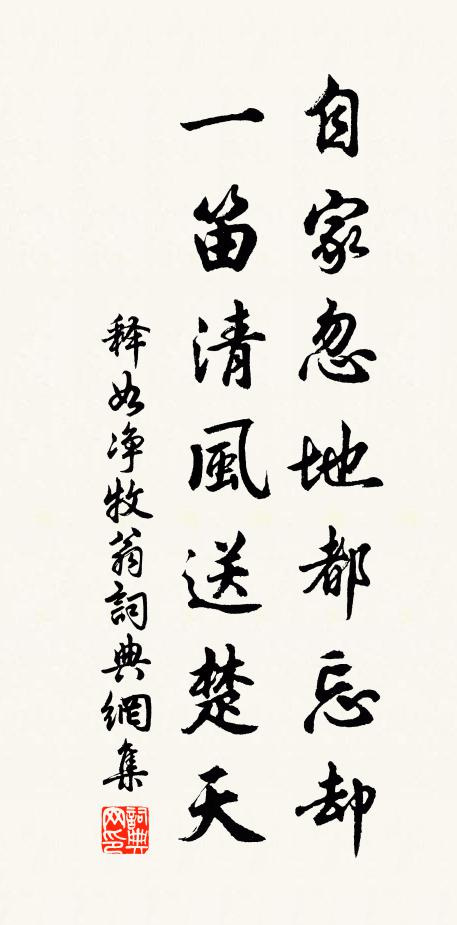 自家忽地都忘却
一笛清風送楚天
释如净牧翁詞典網集
詞典网印